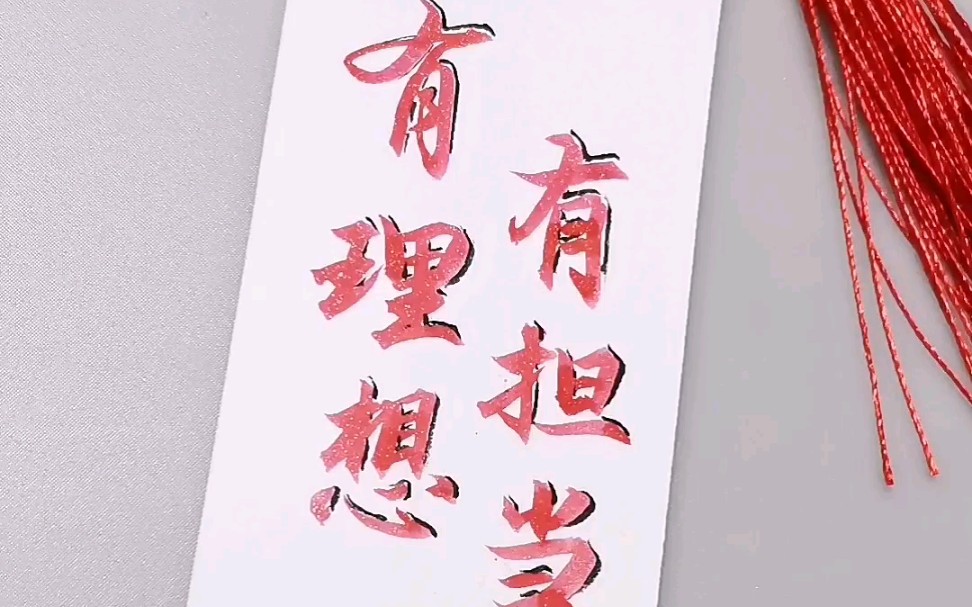 有理想
有担当